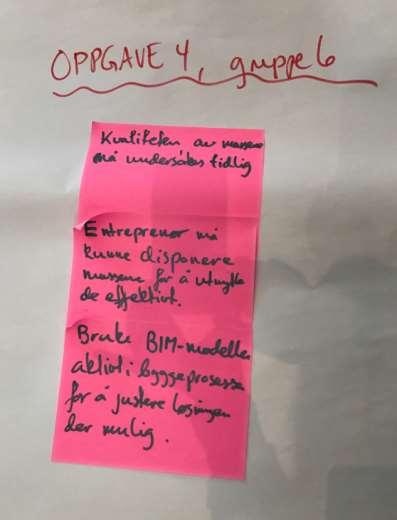 OPPGAVE 4, gruppe 6
Kvaliteten av massene
må undersøkes tidlig
Entreprenør må
kunne disponere
massene for å utnytte
de effektivt.
Bruke BIM-modellen
aktivt i byggeprosessen
for å justere løsningen
der mulig.